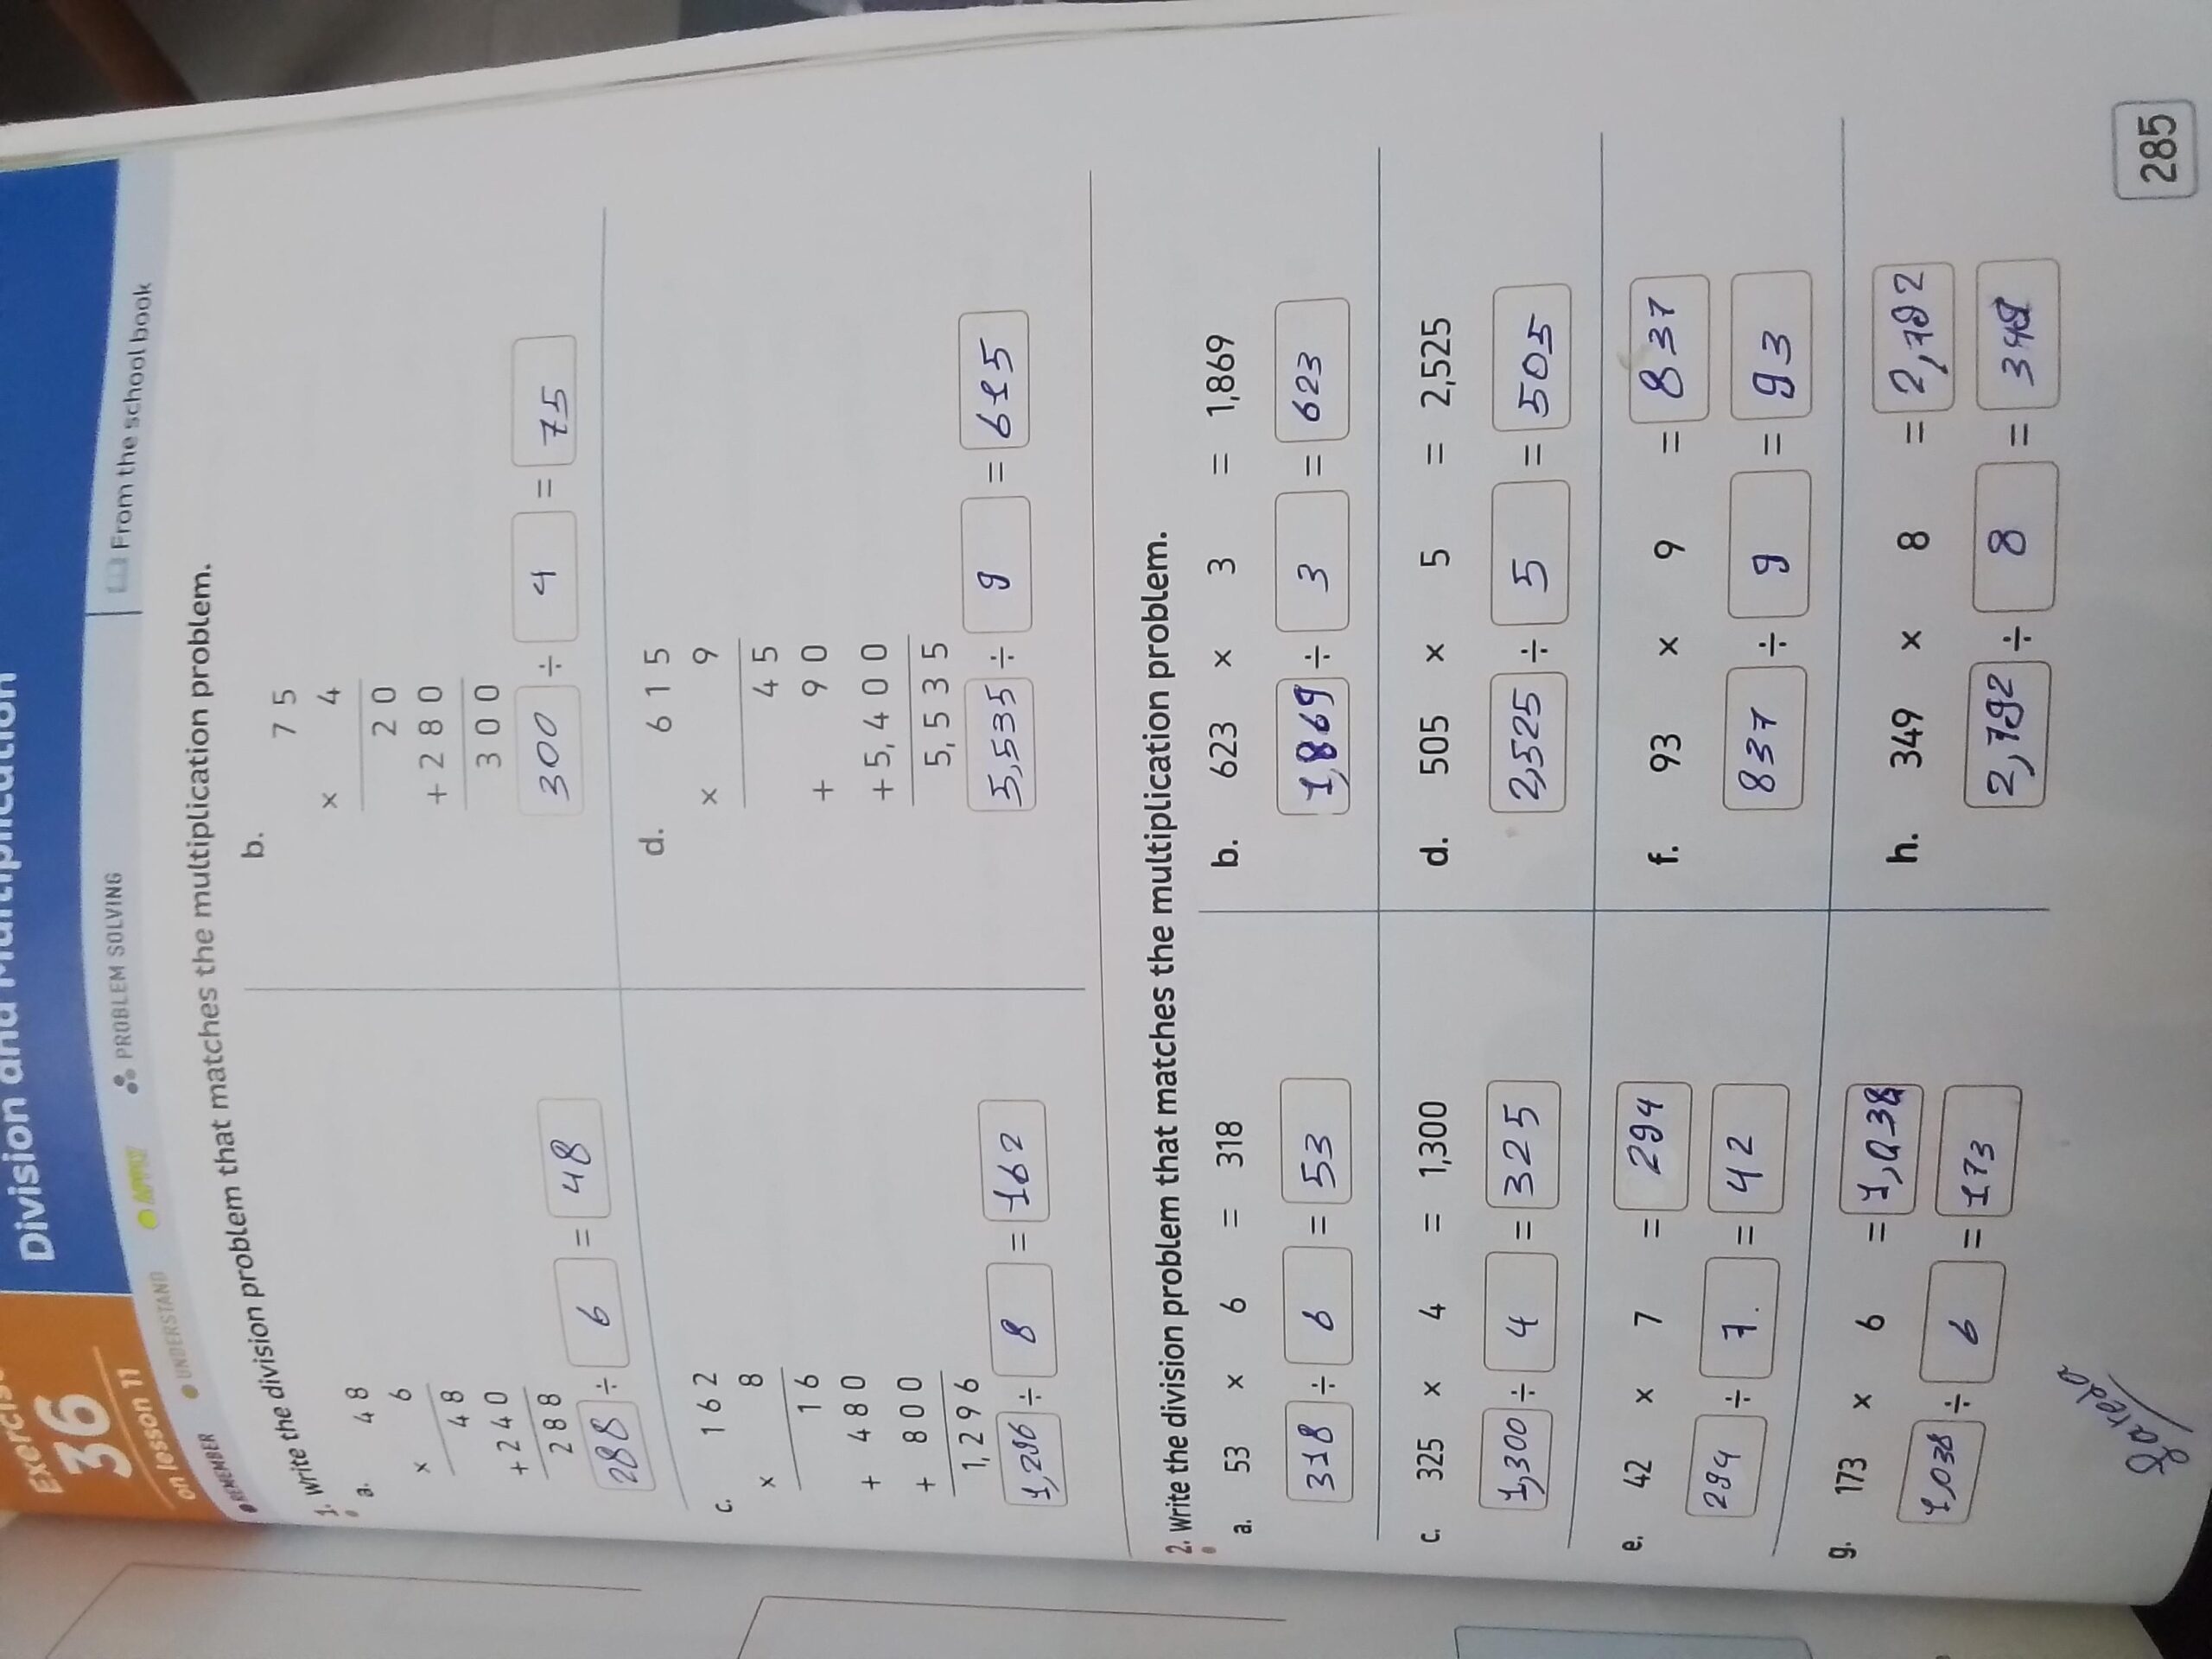 36
Division and Multiplication
on lesson 11
REMEMBER UNDERSTAND APPLY PROBLEM SOLVING From the school book
1. Write the division problem that matches the multiplication problem.
a. 48
× 6
48
+ 240
288
288 ÷ 6 = 48
b. 75
× 4
20
+ 280
300
300 ÷ 4 = 75
c. 162
× 8
16
+ 480
+ 800
1,296
1,296 ÷ 8 = 162
d. 615
× 9
45
+ 90
+ 5,400
5,535
5,535 ÷ 9 = 615
2. Write the division problem that matches the multiplication problem.
a. 53 × 6 = 318
318 ÷ 6 = 53
b. 623 × 3 = 1,869
1,869 ÷ 3 = 623
c. 325 × 4 = 1,300
1,300 ÷ 4 = 325
d. 505 × 5 = 2,525
2,525 ÷ 5 = 505
e. 42 × 7 = 294
294 ÷ 7 = 42
f. 93 × 9 = 837
837 ÷ 9 = 93
g. 173 × 6 = 1,038
1,038 ÷ 6 = 173
h. 349 × 8 = 2,792
2,792 ÷ 8 = 349
285